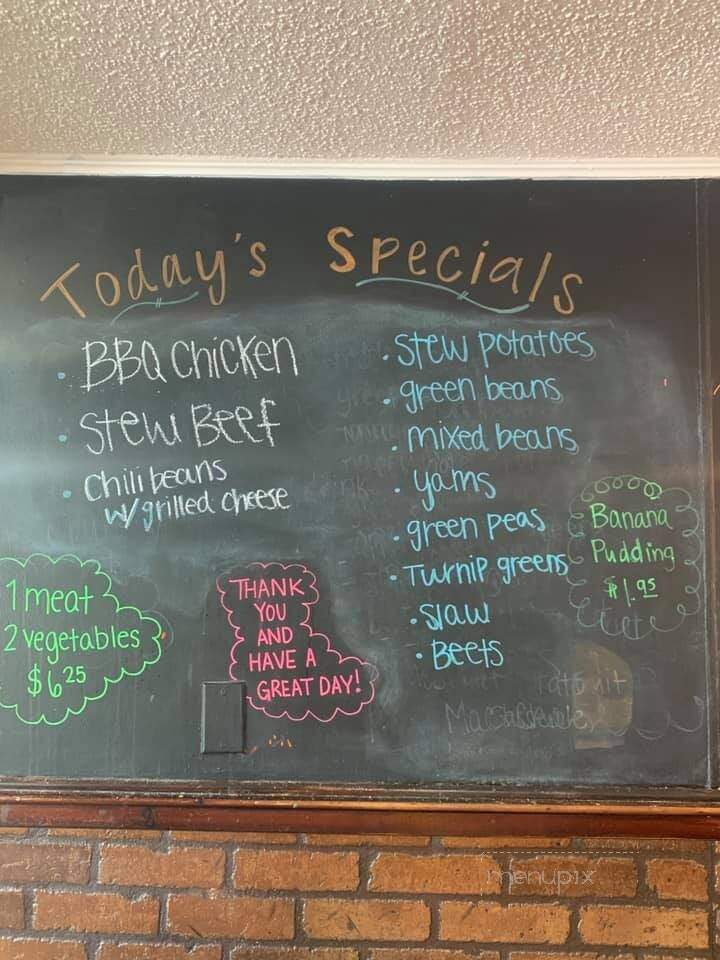 Today's Specials
• BBQ Chicken
• Stew Beef
• Chili beans
w/grilled cheese
• Stew potatoes
• green beans
• mixed beans
• yams
• green peas
• Turnip greens
• Slaw
• Beets
Banana
Pudding
$1.95
1 meat
2 vegetables
$6.25
THANK
YOU
AND
HAVE A
GREAT DAY!
menupix